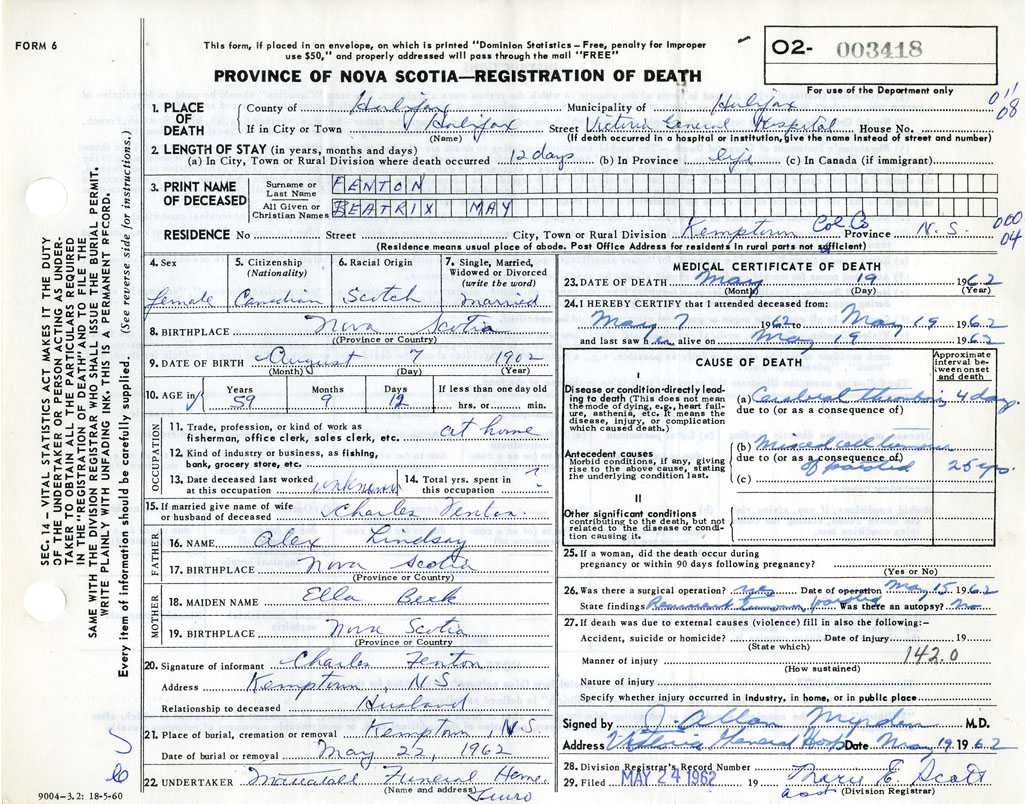 FORM 6
This form, if placed in an envelope, on which is printed "Dominion Statistics – Free, penalty for improper
use $50," and properly addressed will pass through the mail "FREE"
O2- 003418
For use of the Department only
PROVINCE OF NOVA SCOTIA—REGISTRATION OF DEATH
SEC. 14 – VITAL STATISTICS ACT MAKES IT THE DUTY
OF THE UNDERTAKER OR PERSON ACTING AS UNDER-
TAKER TO OBTAIN ALL THE PARTICULARS REQUIRED
IN THE "REGISTRATION OF DEATH" AND TO FILE THE
SAME WITH THE DIVISION REGISTRAR WHO SHALL ISSUE THE BURIAL PERMIT.
WRITE PLAINLY WITH UNFADING INK. THIS IS A PERMANENT RECORD.
Every item of information should be carefully supplied. (See reverse side for instructions.)
1. PLACE OF DEATH
County of Halifax Municipality of Halifax
011
08
If in City or Town Halifax Street Victoria General Hospital House No.
(Name) (If death occurred in a hospital or institution, give the name instead of street and number)
2. LENGTH OF STAY (in years, months and days)
(a) In City, Town or Rural Division where death occurred 12 days (b) In Province life (c) In Canada (if immigrant)
3. PRINT NAME OF DECEASED
Surname or Last Name FENTON
All Given or Christian Names BEATRIX MAY
RESIDENCE No Street City, Town or Rural Division Kemptown Col. Co Province N.S.
000
04
(Residence means usual place of abode. Post Office Address for residents in rural parts not sufficient)
4. Sex female
5. Citizenship (Nationality) Canadian
6. Racial Origin Scotch
7. Single, Married, Widowed or Divorced (write the word) Married
8. BIRTHPLACE Nova Scotia
(Province or Country)
9. DATE OF BIRTH August 7 1902
(Month) (Day) (Year)
10. AGE in Years 59 Months 9 Days 12 If less than one day old hrs. or min.
OCCUPATION
11. Trade, profession, or kind of work as
fisherman, office clerk, sales clerk, etc. at home
12. Kind of industry or business, as fishing,
bank, grocery store, etc.
13. Date deceased last worked
at this occupation unknown
14. Total yrs. spent in
this occupation ?
15. If married give name of wife
or husband of deceased Charles Fenton
FATHER
16. NAME Alex Lindsay
17. BIRTHPLACE Nova Scotia
(Province or Country)
MOTHER
18. MAIDEN NAME Ella
19. BIRTHPLACE Nova Scotia
(Province or Country)
20. Signature of informant Charles Fenton
Address Kemptown, N.S.
Relationship to deceased Husband
21. Place of burial, cremation or removal Kemptown, N.S.
Date of burial or removal May 22, 1962
22. UNDERTAKER Funeral Home
(Name and address) Truro
9004-3.2: 18-5-60
MEDICAL CERTIFICATE OF DEATH
23. DATE OF DEATH May 19 1962
(Month) (Day)
24. I HEREBY CERTIFY that I attended deceased from:
May 7 1962 to May 19 1962
and last saw h er alive on May 19 1962
CAUSE OF DEATH
Approximate interval between onset and death
I
Disease or condition directly lead-
ing to death (This does not mean
the mode of dying, e.g., heart fail-
ure, asthenia, etc. It means the
disease, injury, or complication
which caused death.)
(a) Cerebral thrombosis 4 days
due to (or as a consequence of)
Antecedent causes
Morbid conditions, if any, giving
rise to the above cause, stating
the underlying condition last.
(b) Mixed cell tumour
due to (or as a consequence of)
of parotid 25 yrs.
(c)
II
Other significant conditions
contributing to the death, but not
related to the disease or condi-
tion causing it.
25. If a woman, did the death occur during
pregnancy or within 90 days following pregnancy?
(Yes or No)
26. Was there a surgical operation? yes Date of operation May 15 1962
State findings tumour parotid Was there an autopsy? No
27. If death was due to external causes (violence) fill in also the following:–
Accident, suicide or homicide? Date of injury 19
(State which)
Manner of injury 142.0
(How sustained)
Nature of injury
Specify whether injury occurred in industry, in home, or in public place
Signed by J. Allan Myrden M.D.
Address Victoria General Hosp Date May 19 1962
28. Division Registrar's Record Number
29. Filed MAY 24 1962 19 Marie E. Scott
asst (Division Registrar)